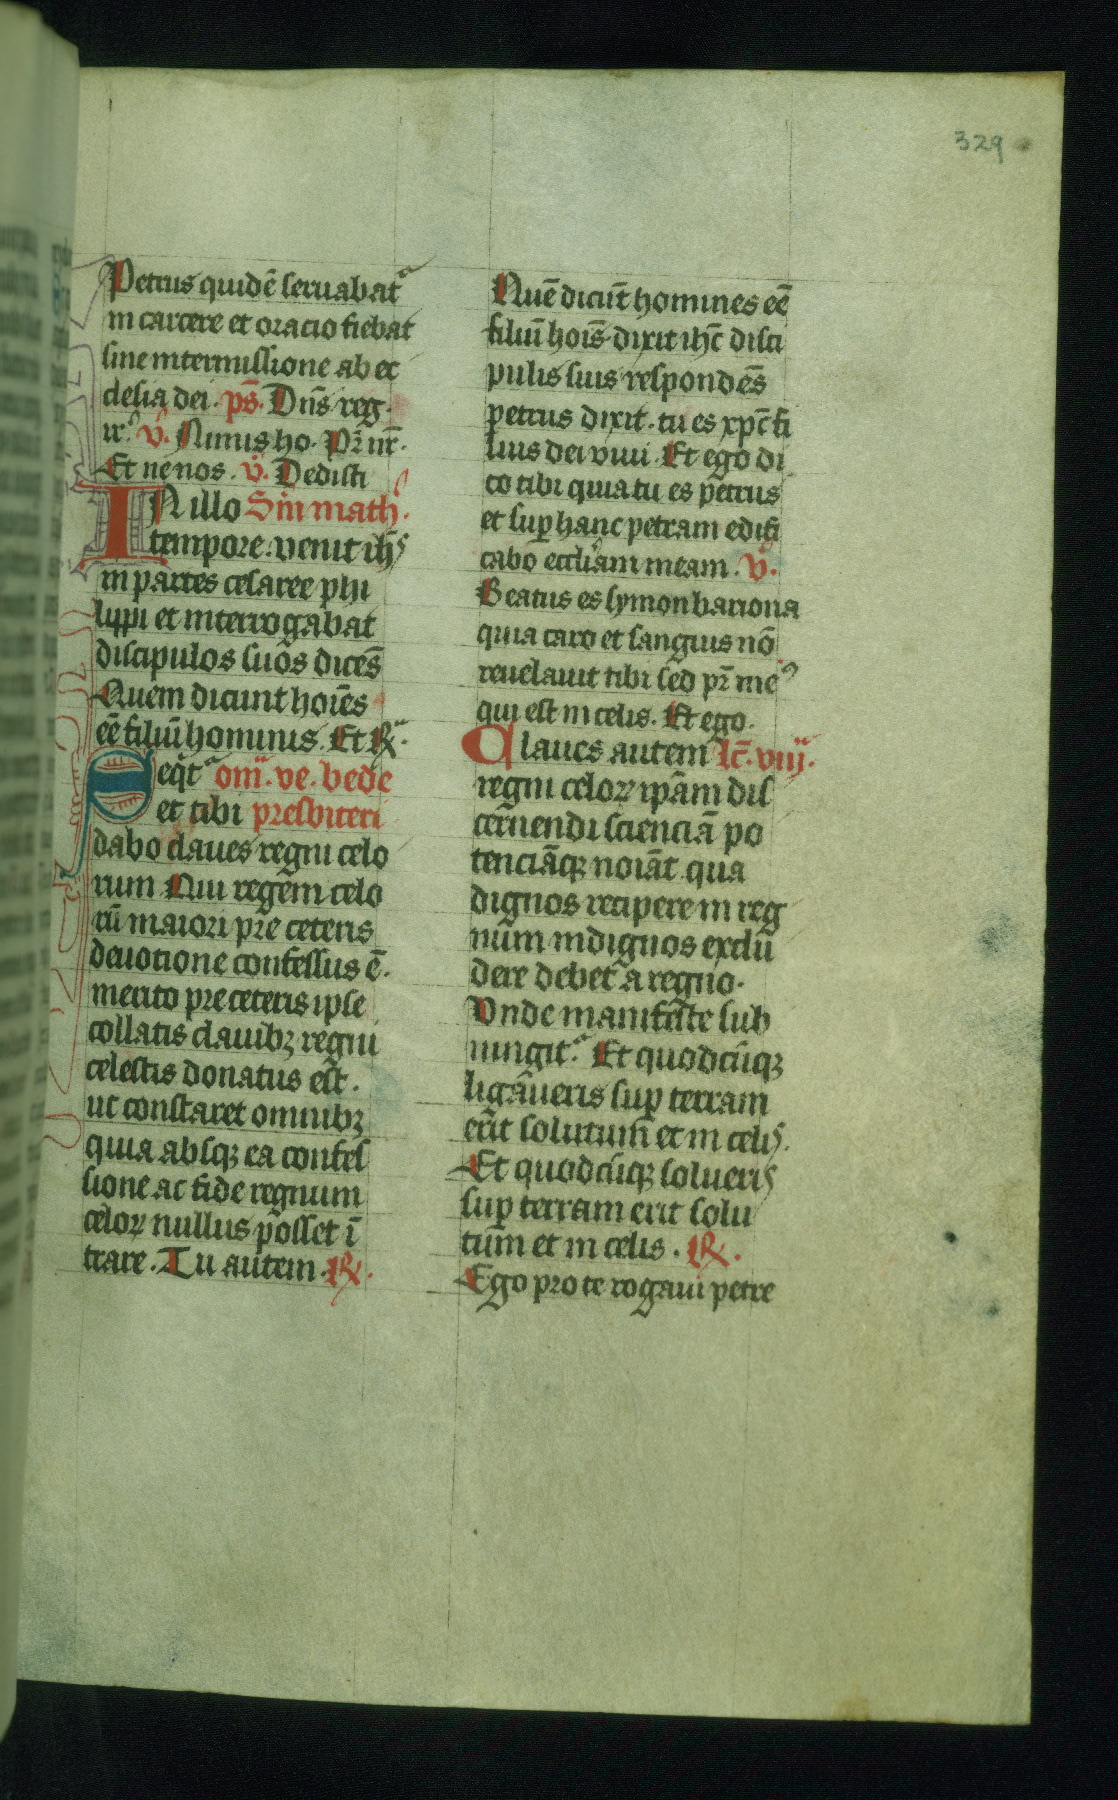 329
Petrus quidē seruabatᵃ
in carcere et oracio fiebat
sine intermissione ab ec
clesia dei. p̄s. Dn̄s reg.
ir᷒. v̊. Nimis ho. Pr̄ nr̄.
Et ne nos. v̊. Dedisti
IN illo Sm̄ math᷒.
tempore. venit ih᷒
in partes cesaree phi
lippi et interrogabat
discipulos suos dicēs
Quem dicunt hoīes
eē filiū hominis. Et Rᵃ.
Et
ōm. ve. bede
et tibi presbiteri
dabo claues regni celo
rum Qui regem celo
rū maiori pre ceteris
deuotione confessus ē.
merito pre ceteris ipse
collatis clauibꝫ regni
celestis donatus est.
ut constaret omnibꝫ
quia absqꝫ ea confes
sione ac fide regnum
celoꝝ nullus posset ī
trare. Tu autem. ℟.
Quē dicūt homines eē
filiū hoīs dixit ihc̄ disci
pulis suis respondēs
petrus dixit. tu es xpc̄ fi
lius dei viui. Et ego di
co tibi quia tu es petrus
et suꝑ hanc petram edifi
cabo eccl̄iam meam. v̊.
Beatus es symon bariona
quia caro et sanguis nō
reuelauit tibi sed pr̄ me᷒
qui est in celis. Et ego.
Claues autem lc̄. viij.
regni celoꝝ ipām dis
cernendi scienciā po
tenciāqꝫ noīat qua
dignos recipere in reg
num indignos exclu
dere debetᵃ a regno.
Vnde manifeste sub
iungitᵃ. Et quodcūqꝫ
ligaueris suꝑ terram
erit solutum et in celis.
Et quodcūqꝫ solueris
suꝑ terram erit solu
tum et in celis. ℟.
Ego pro te rogaui petre